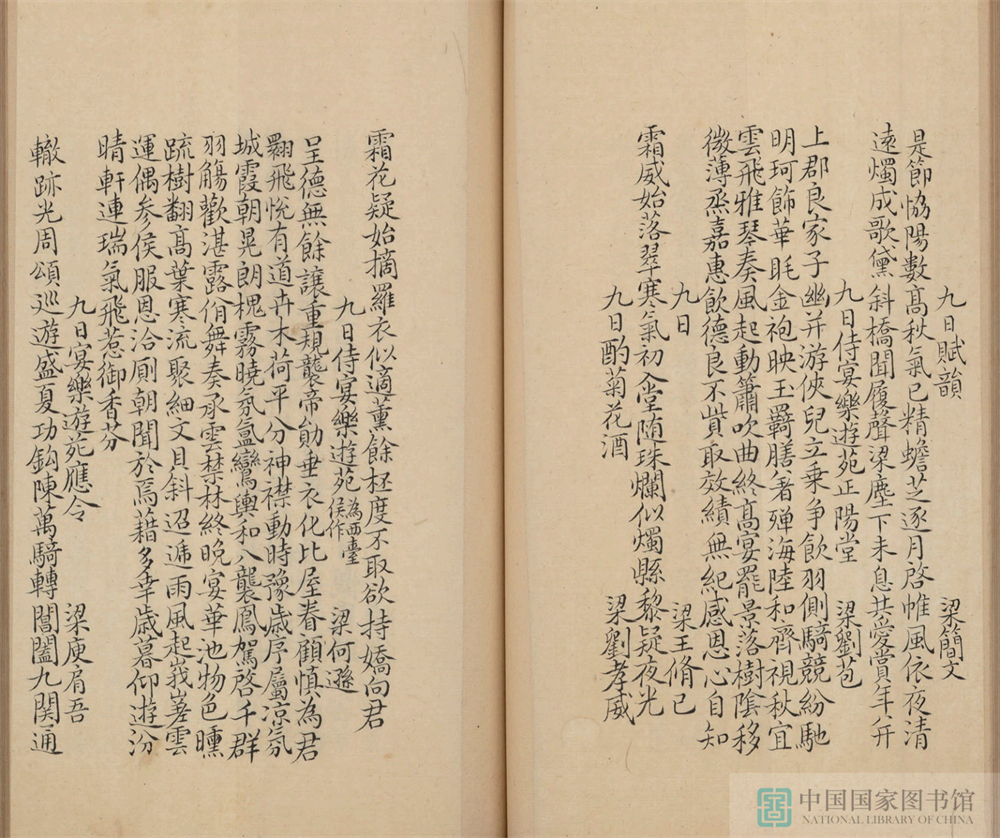 九日賦韻 梁簡文
是節恊陽數高秋氣已精蟾芝逐月啓帷風依夜清
遠燭成歌黛斜橋聞履聲梁塵下未息共愛賞年并
九日侍宴樂遊苑正陽堂 梁劉苞
上郡良家子幽并游俠兒立乗争飲羽側騎競紛馳
明珂飾華眊金袍映玉羇膳羞殫海陸和齊視秋宜
雲飛雅琴奏風起動簫吹曲終高宴罷景落樹陰移
微薄烝嘉惠飲德良不貲取效績無紀感恩心自知
九日 梁王脩已
霜威始落翠寒氣初入堂随珠爛似燭縣黎疑夜光
九日酌菊花酒 梁劉孝威
霜花疑始摘羅衣似適薰餘杯度不取欲持嬌向君
九日侍宴樂遊苑為西臺侯作 梁何遜
呈德無餘讓重規襲帝勛垂衣化比屋眷顧慎為君
翾飛悅有道卉木荷平分神襟動時豫歳序屬凉氛
城霞朝晃朗槐霧曉氛氲鸞輿和八襲鳳駕啓千群
羽觴歡湛露佾舞奏承雲禁林終晚宴華池物色曛
疏樹翻高葉寒流聚細文貝斜迢遞雨風起峩嵳雲
運偶参侯服恩洽厠朝聞於焉藉多幸歳暮仰遊汾
晴軒連瑞氣飛惹御香芬
九日宴樂遊苑應令 梁庾肩吾
轍跡光周頌巡遊盛夏功鈎陳萬騎轉閶闔九関通
中国国家图书馆
NATIONAL LIBRARY OF CHINA